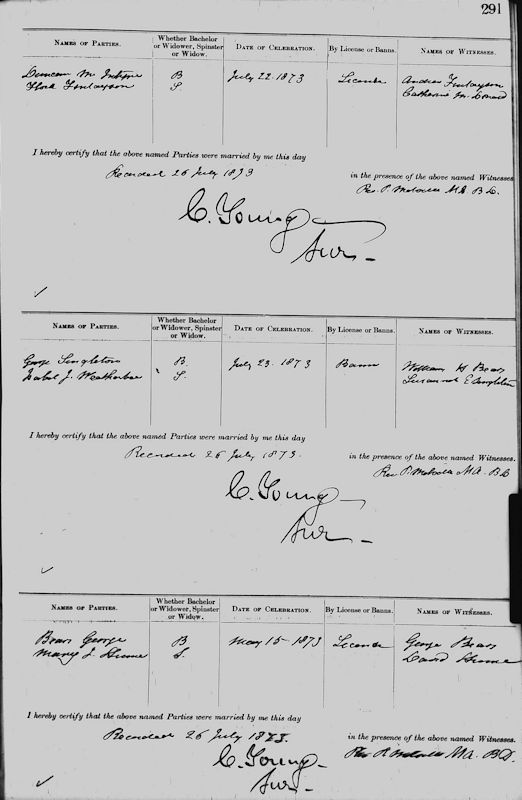 291
NAMES OF PARTIES. Whether Bachelor or Widower, Spinster or Widow. DATE OF CELEBRATION. By License or Banns. NAMES OF WITNESSES.
Duncan McIntyre B July 22. 1873 License Andrew Finlayson
Flora Finlayson S. Catherine McDonald
I hereby certify that the above named Parties were married by me this day
Recorded 26 July 1873 in the presence of the above named Witnesses.
Rev P. Melville MA B D.
C. Young
Surr
NAMES OF PARTIES. Whether Bachelor or Widower, Spinster or Widow. DATE OF CELEBRATION. By License or Banns. NAMES OF WITNESSES.
George Singleton B. July 23. 1873 Banns William H Bears
Isabel J. Weatherbee S. Susannah E Singleton
I hereby certify that the above named Parties were married by me this day
Recorded 26 July 1873. in the presence of the above named Witnesses.
Rev P. Melville MA. B D
C. Young
Surr
NAMES OF PARTIES. Whether Bachelor or Widower, Spinster or Widow. DATE OF CELEBRATION. By License or Banns. NAMES OF WITNESSES.
Bears George B May 15 - 1873 License George Bears
Mary J. Hume S. David Hume
I hereby certify that the above named Parties were married by me this day
Recorded 26 July 1873. in the presence of the above named Witnesses.
Rev P. Melville MA. B D.
C. Young
Surr